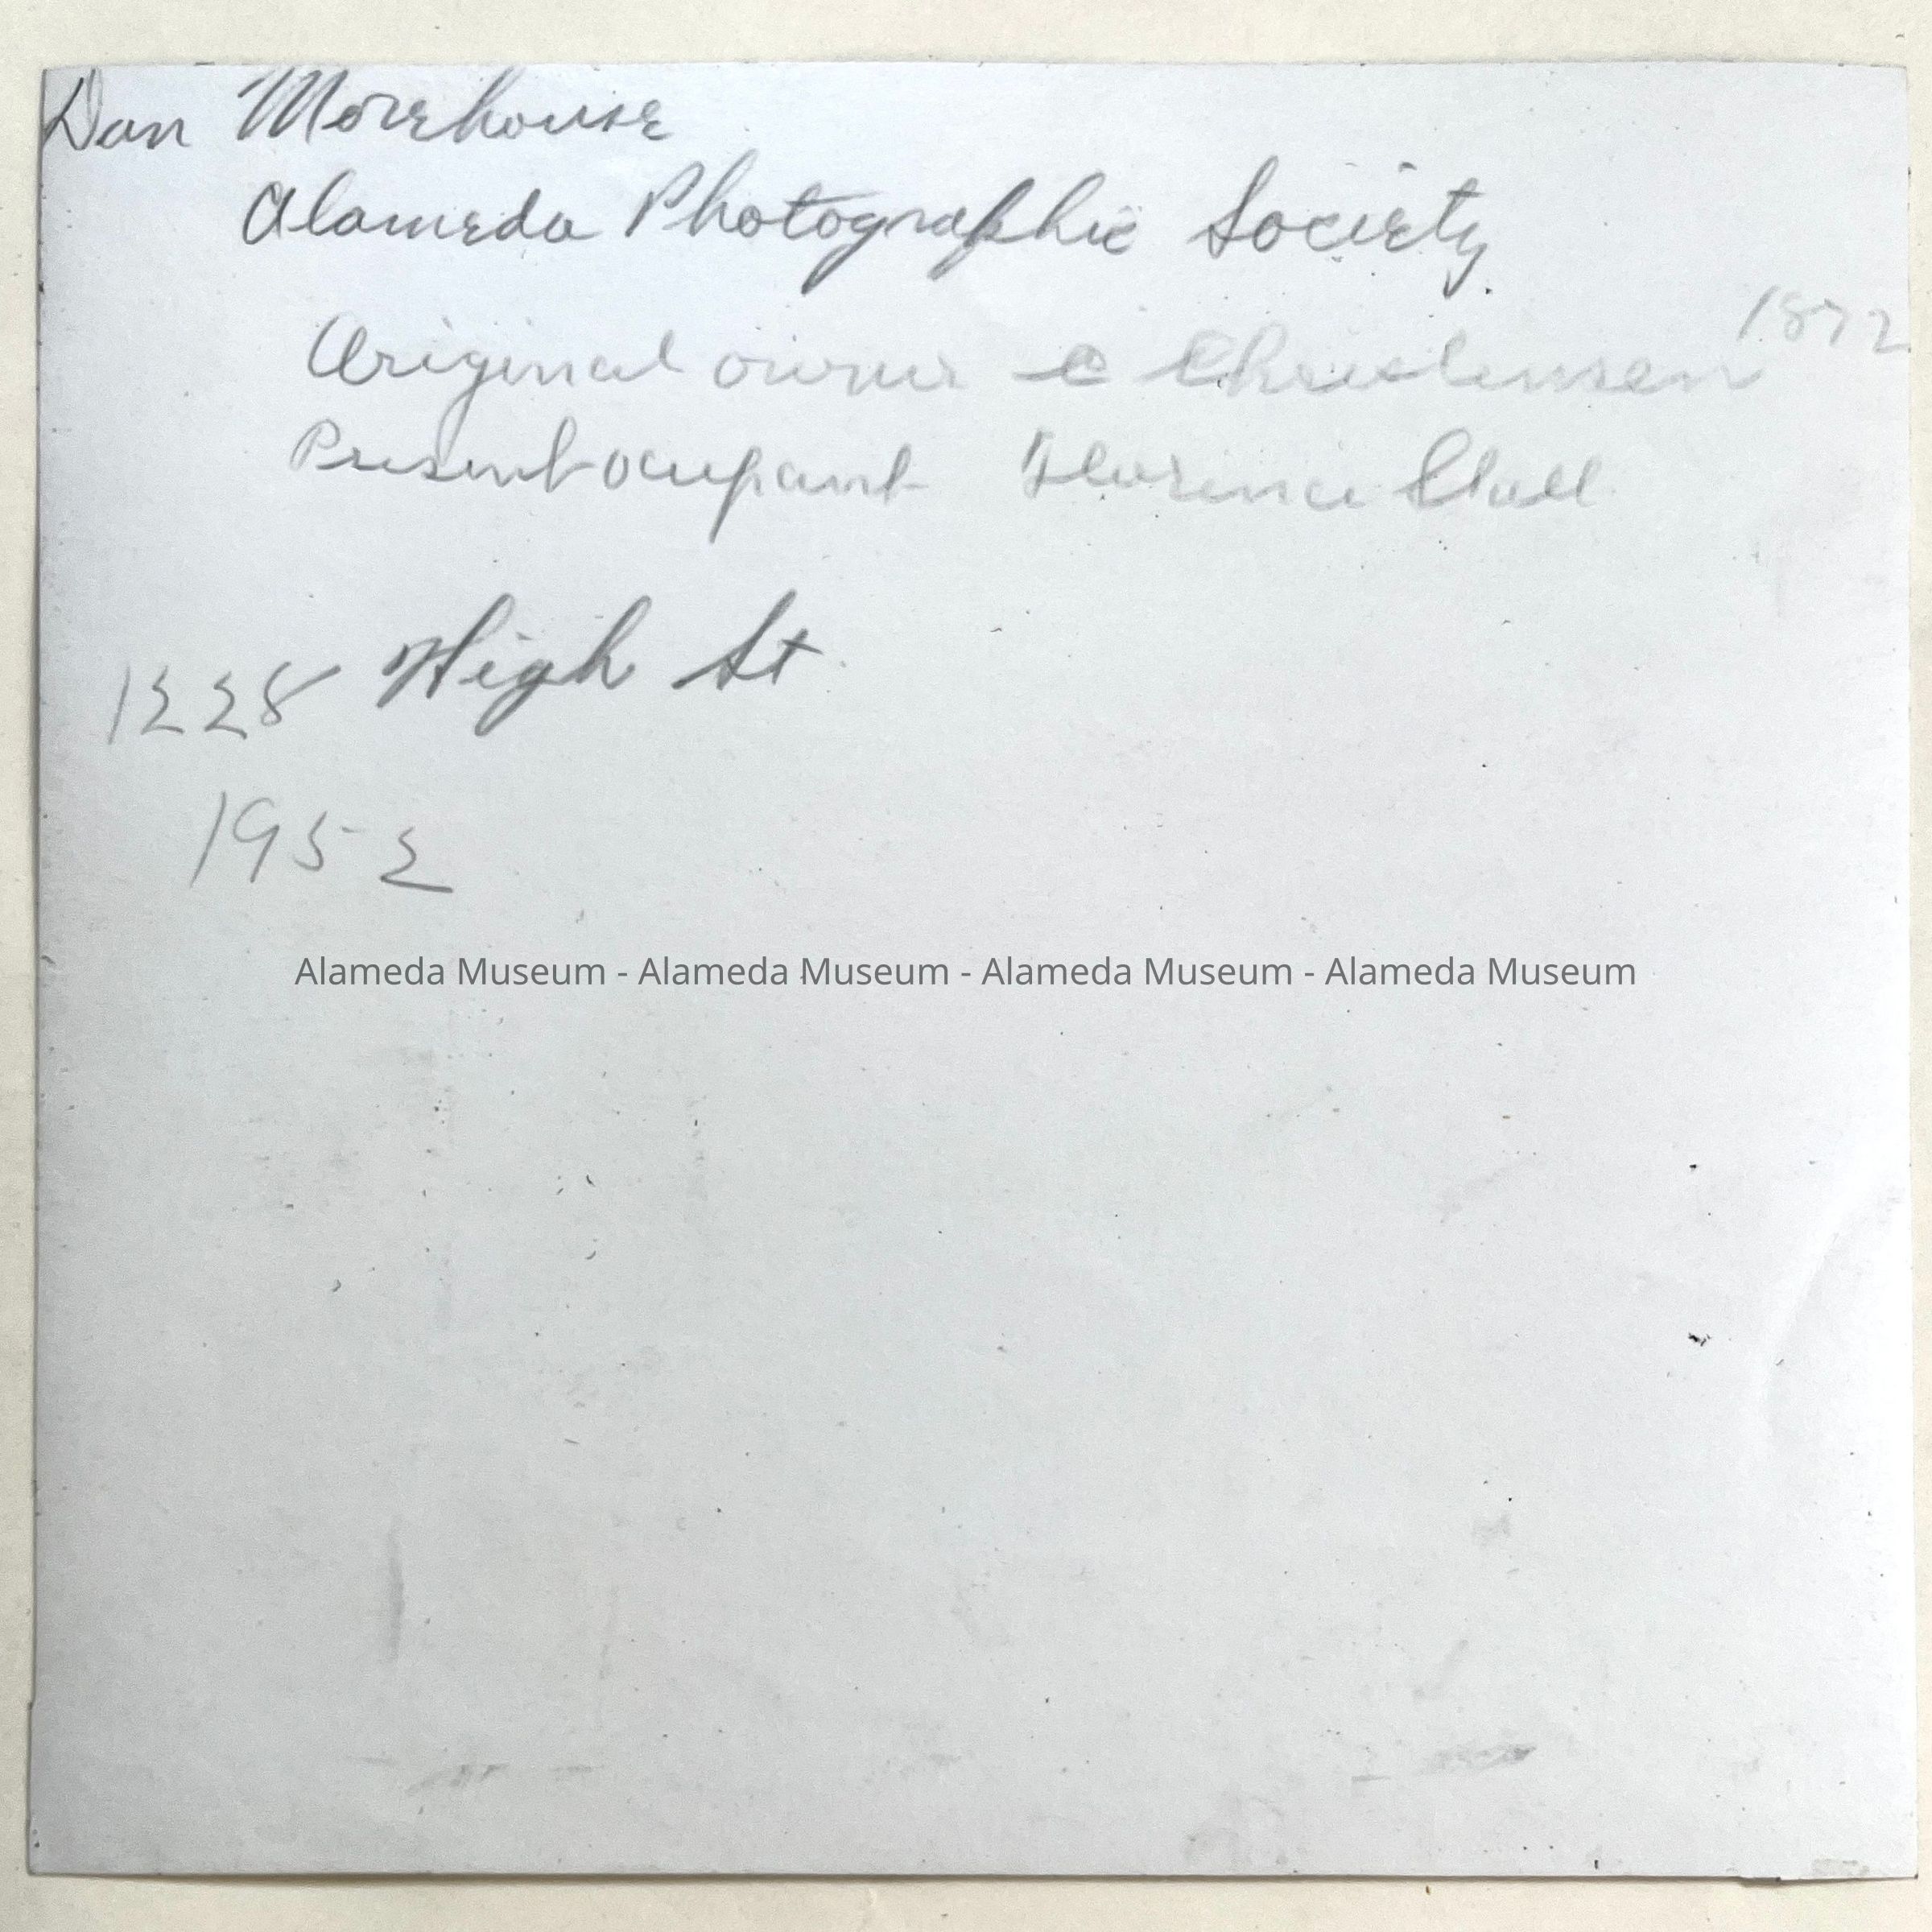 Dan Morehouse
Alameda Photographic Society
Original owner C Christensen 1872
Present ocupant Florence
1228 High St
1952
Alameda Museum - Alameda Museum - Alameda Museum - Alameda Museum